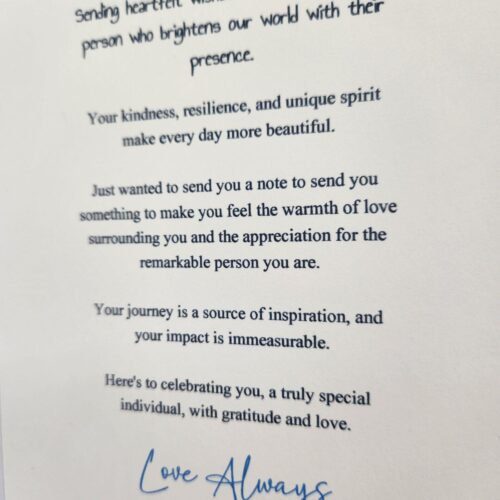 Sending heartfelt
person who brightens our world with their
presence.
Your kindness, resilience, and unique spirit
make every day more beautiful.
Just wanted to send you a note to send you
something to make you feel the warmth of love
surrounding you and the appreciation for the
remarkable person you are.
Your journey is a source of inspiration, and
your impact is immeasurable.
Here's to celebrating you, a truly special
individual, with gratitude and love.
Love Always